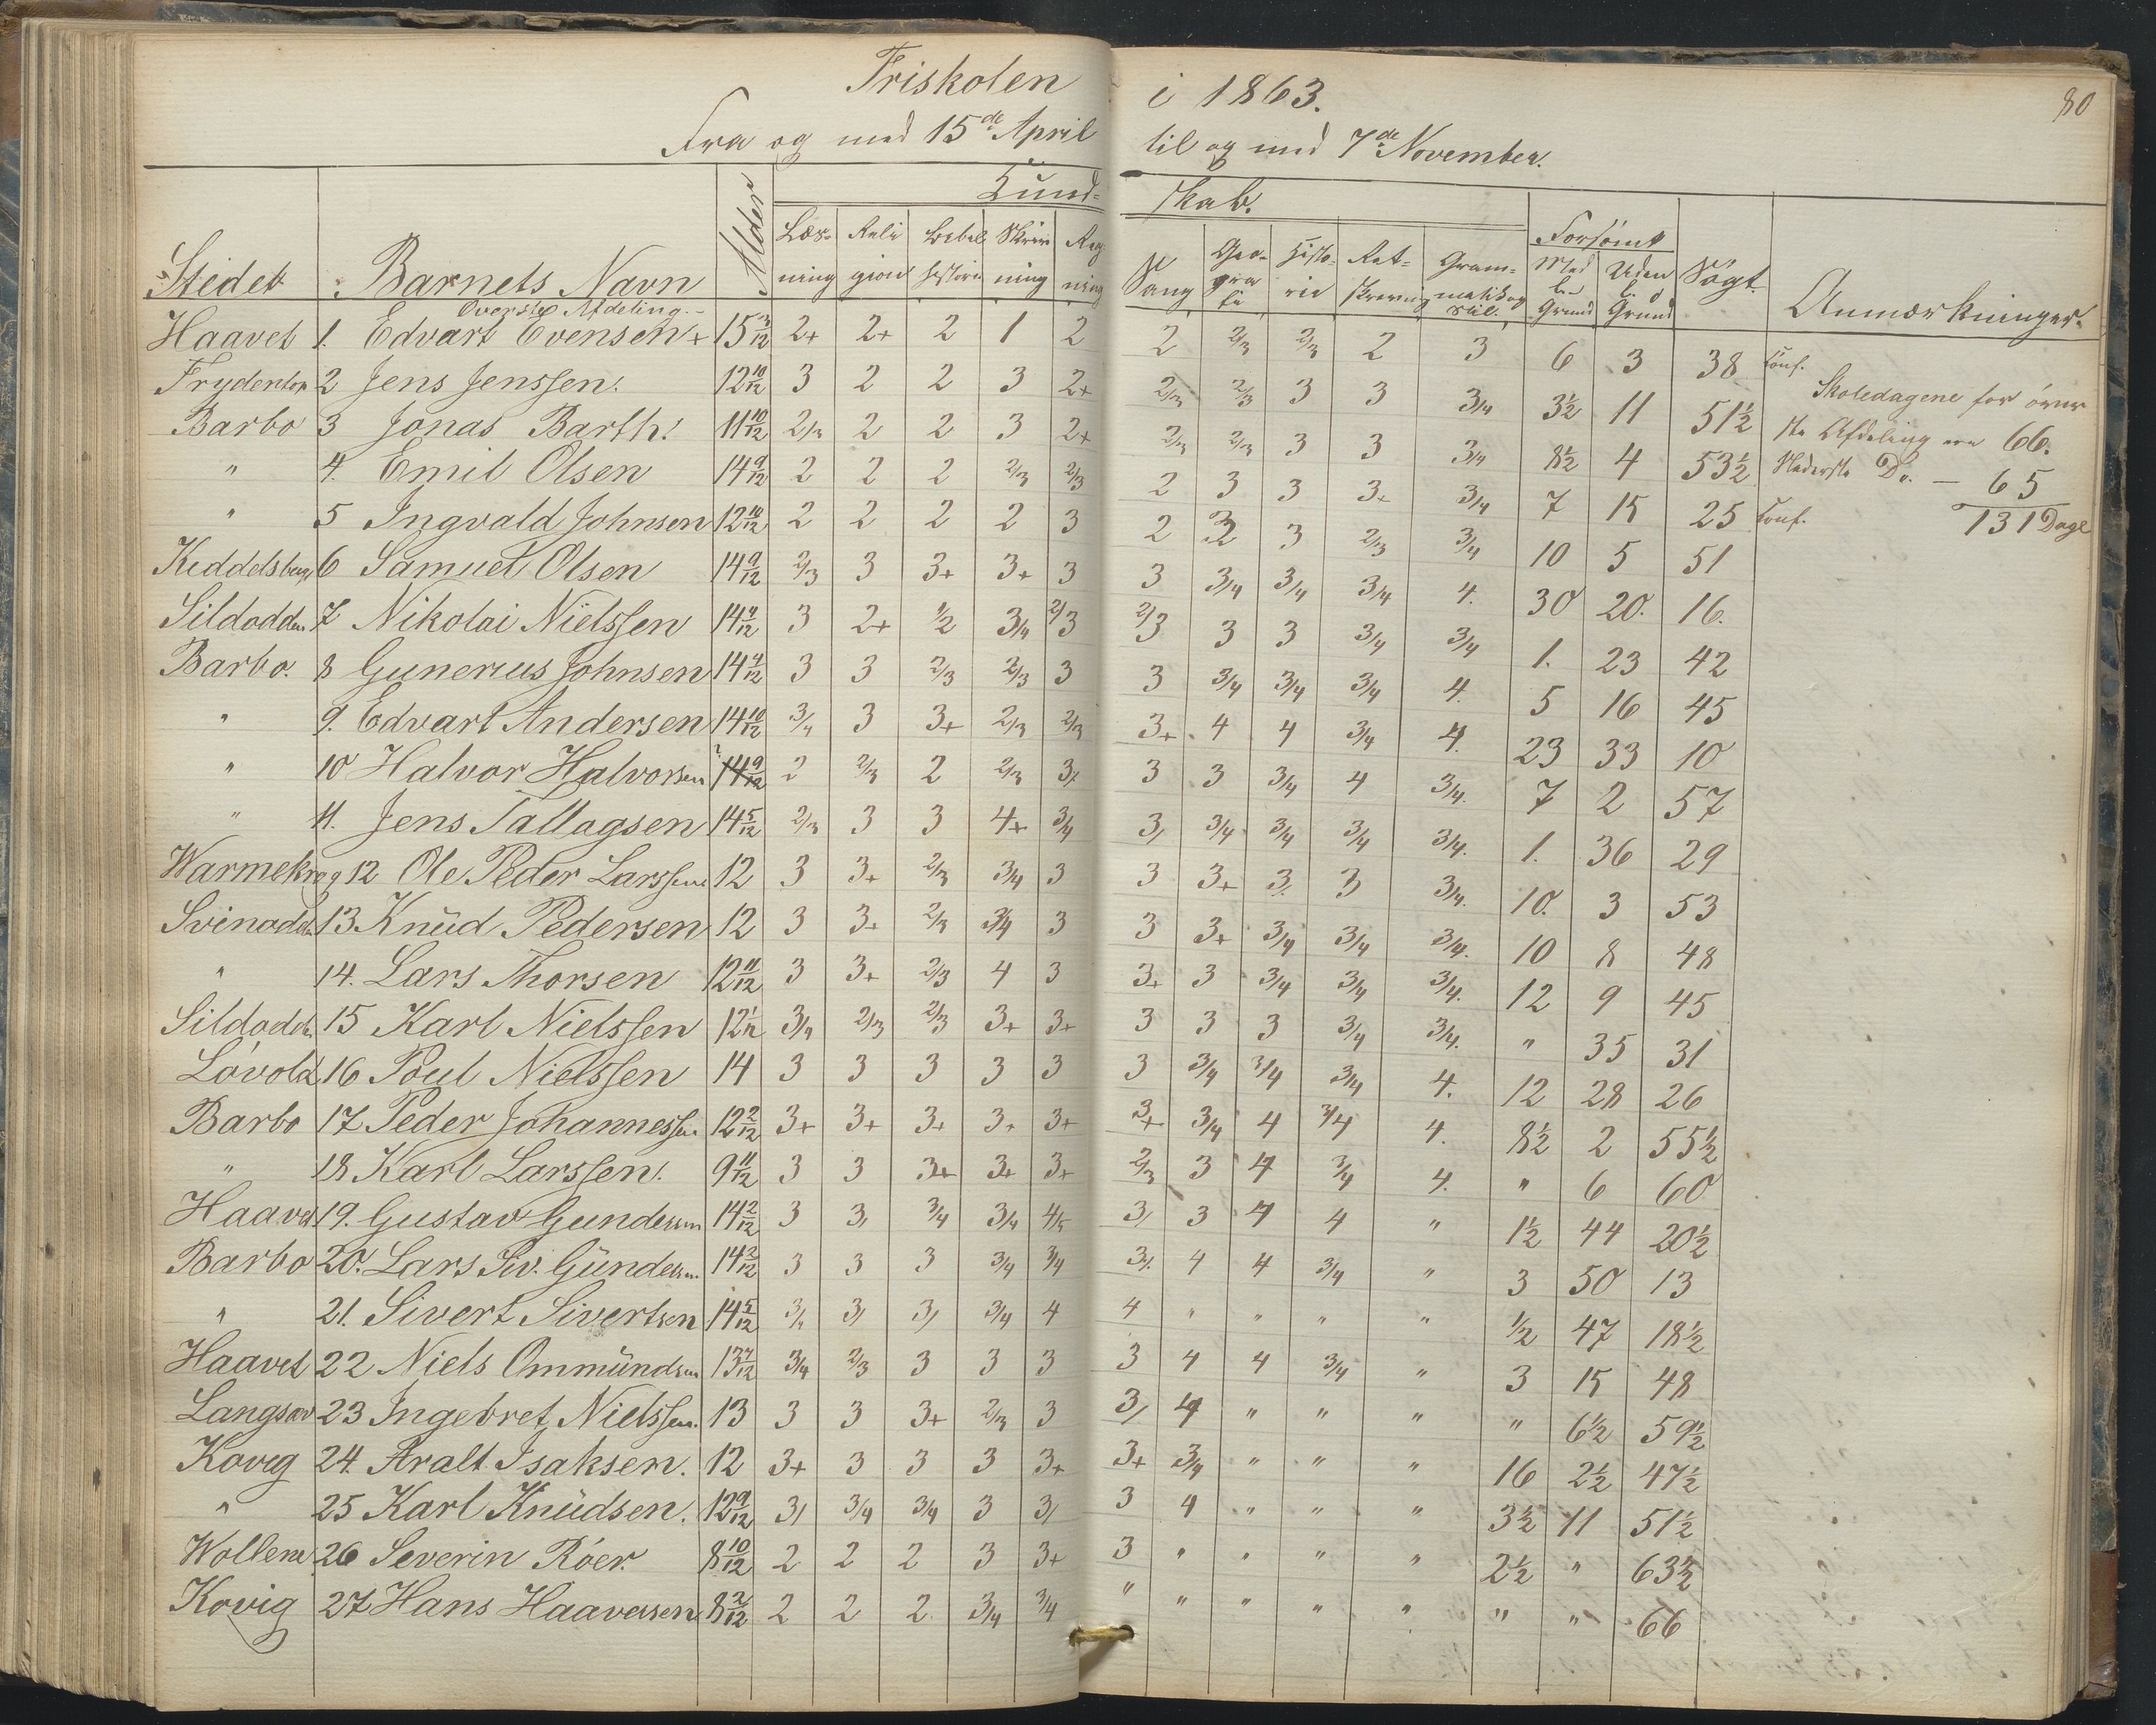 Friskolen i 1863.
80
Fra og med 15de April til og med 7de November.
Kund- skab.
Stedet Barnets Navn Alder Læs- ning Reli gion Bibel historie Skriv ning Reg ning Sang Geo- gra fi Histo- rie Ret- skrivnig Gram- matik og Stil. Forsömt Med l. Grund Uden l. Grund Sögt. Anmærkninger.
Överste Afdeling.
Haavet 1. Edvart Evensen + 15 3/12 2+ 2+ 2 1 2 2 2/3 2/3 2 3 6 3 38 Conf.
Frydenton 2 Jens Jenssen. 12 10/12 3 2 2 3 2+ 2/3 2/3 3 3 3/4 3½ 11 51½ Skoledagene for över
Barbo 3 Jonas Barth. 11 10/12 2/3 2 2 3 2+ 2/3 2/3 3 3 3/4 8½ 4 53½ ste Afdeling ere 66.
" 4. Emil Olsen 14 9/12 2 2 2 2/3 2/3 2 3 3 3+ 3/4 7 15 25 Conf. Nederste Do. — 65
131 Dage
" 5 Ingvald Johnsen 12 10/12 2 2 2 2 3 2 3 3 2/3 3/4 10 5 51
Kiddelsberg 6 Samuel Olsen 14 9/12 2/3 3 3+ 3+ 3 3 3/4 3/4 3/4 4. 30 20. 16.
Sildodden 7 Nikolai Nielssen 14 4/12 3 2+ ½ 3/4 2/3 2/3 3 3 3/4 3/4 1. 23 42
Barbo. 8 Gunerius Johnsen 14 4/12 3 3 2/3 2/3 3 3 3/4 3/4 3/4 4. 5 16 45
" 9. Edvart Andersen 14 10/12 3/4 3 3+ 2/3 2/3 3+ 4 4 3/4 4. 23 33 10
" 10 Halvor Halvorsen 14 9/12 2 2/3 2 2/3 3/ 3 3 3/4 4 3/4. 7 2 57
" 11. Jens Tallagsen 14 5/12 2/3 3 3 4+ 3/4 3/ 3/4 3/4 3/4 3/4. 1. 36 29
Warmekrog 12 Ole Peder Larssen 12 3 3+ 2/3 3/4 3 3 3+ 3/ 3 3/4. 10. 3 53
Svinodden 13 Knüd Pedersen 12 3 3+ 2/3 3/4 3 3 3+ 3/4 3/4 3/4. 10 8 48
" 14. Lars Thorsen 12 11/12 3 3+ 2/3 4 3 3+ 3 3/4 3/4 3/4. 12 9 45
Sildodden 15 Karl Nielssen 12 1/12 3/4 2/3 2/3 3+ 3+ 3 3 3 3/4 3/4. " 35 31
Lövold 16 Poul Nielssen 14 3 3 3 3 3 3 3/4 3/4 3/4 4. 12 28 26
Barbo 17 Peder Johannessen 12 2/12 3+ 3+ 3+ 3+ 3+ 3+ 3/4 4 3/4 4. 8½ 2 55½
" 18 Karl Larssen. 9 11/12 3 3 3+ 3+ 3+ 2/3 3 4 3/4 4. " 6 60
Haavet 19. Gustav Gundersen 14 2/12 3 3/ 3/4 3/4 4/5 3/ 3 4 4 " 1½ 44 20½
Barbo 20. Lars Siv. Gündersen. 14 2/12 3 3 3 3/4 3/4 3/. 4 4 3/4 " 3 50 13
" 21. Sivert Sivertsen 14 5/12 3/4 3/ 3/ 3/4 4 4 " " " " ½ 47 18½
Haavet 22 Niels Ommündsen 13 7/12 3/4 2/3 3 3 3 3 4 4 3/4 " 3 15 48
Langsæv 23 Ingebret Nielssen. 13 3 3 3+ 2/3 3 3/ 4 " " " " 6½ 59½
Koveg 24. Aralt Isaksen. 12 3+ 3 3 3 3+ 3+ 3/4 " " " 16 2½ 47½
" 25 Karl Knüdsen. 12 9/12 3/ 3/4 3/4 3 3/ 3 4 " " " 3½ 11 51½
Wollene 26 Severin Röer. 8 10/12 2 2 2 3 3+ 3 " " " " 2½ " 63½
Kovig 27 Hans Haaversen 8 2/12 2 2 2 3/4 3/4 " " " " " " " 66